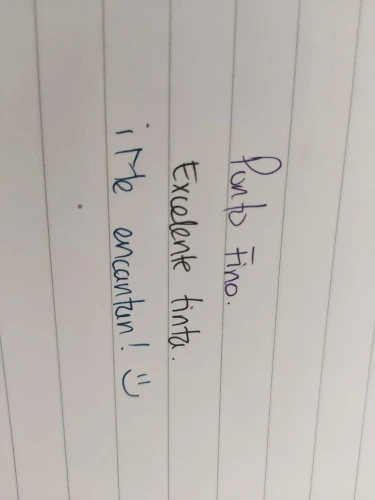 Punto Fino.
Excelente tinta.
¡Me encantan! :)